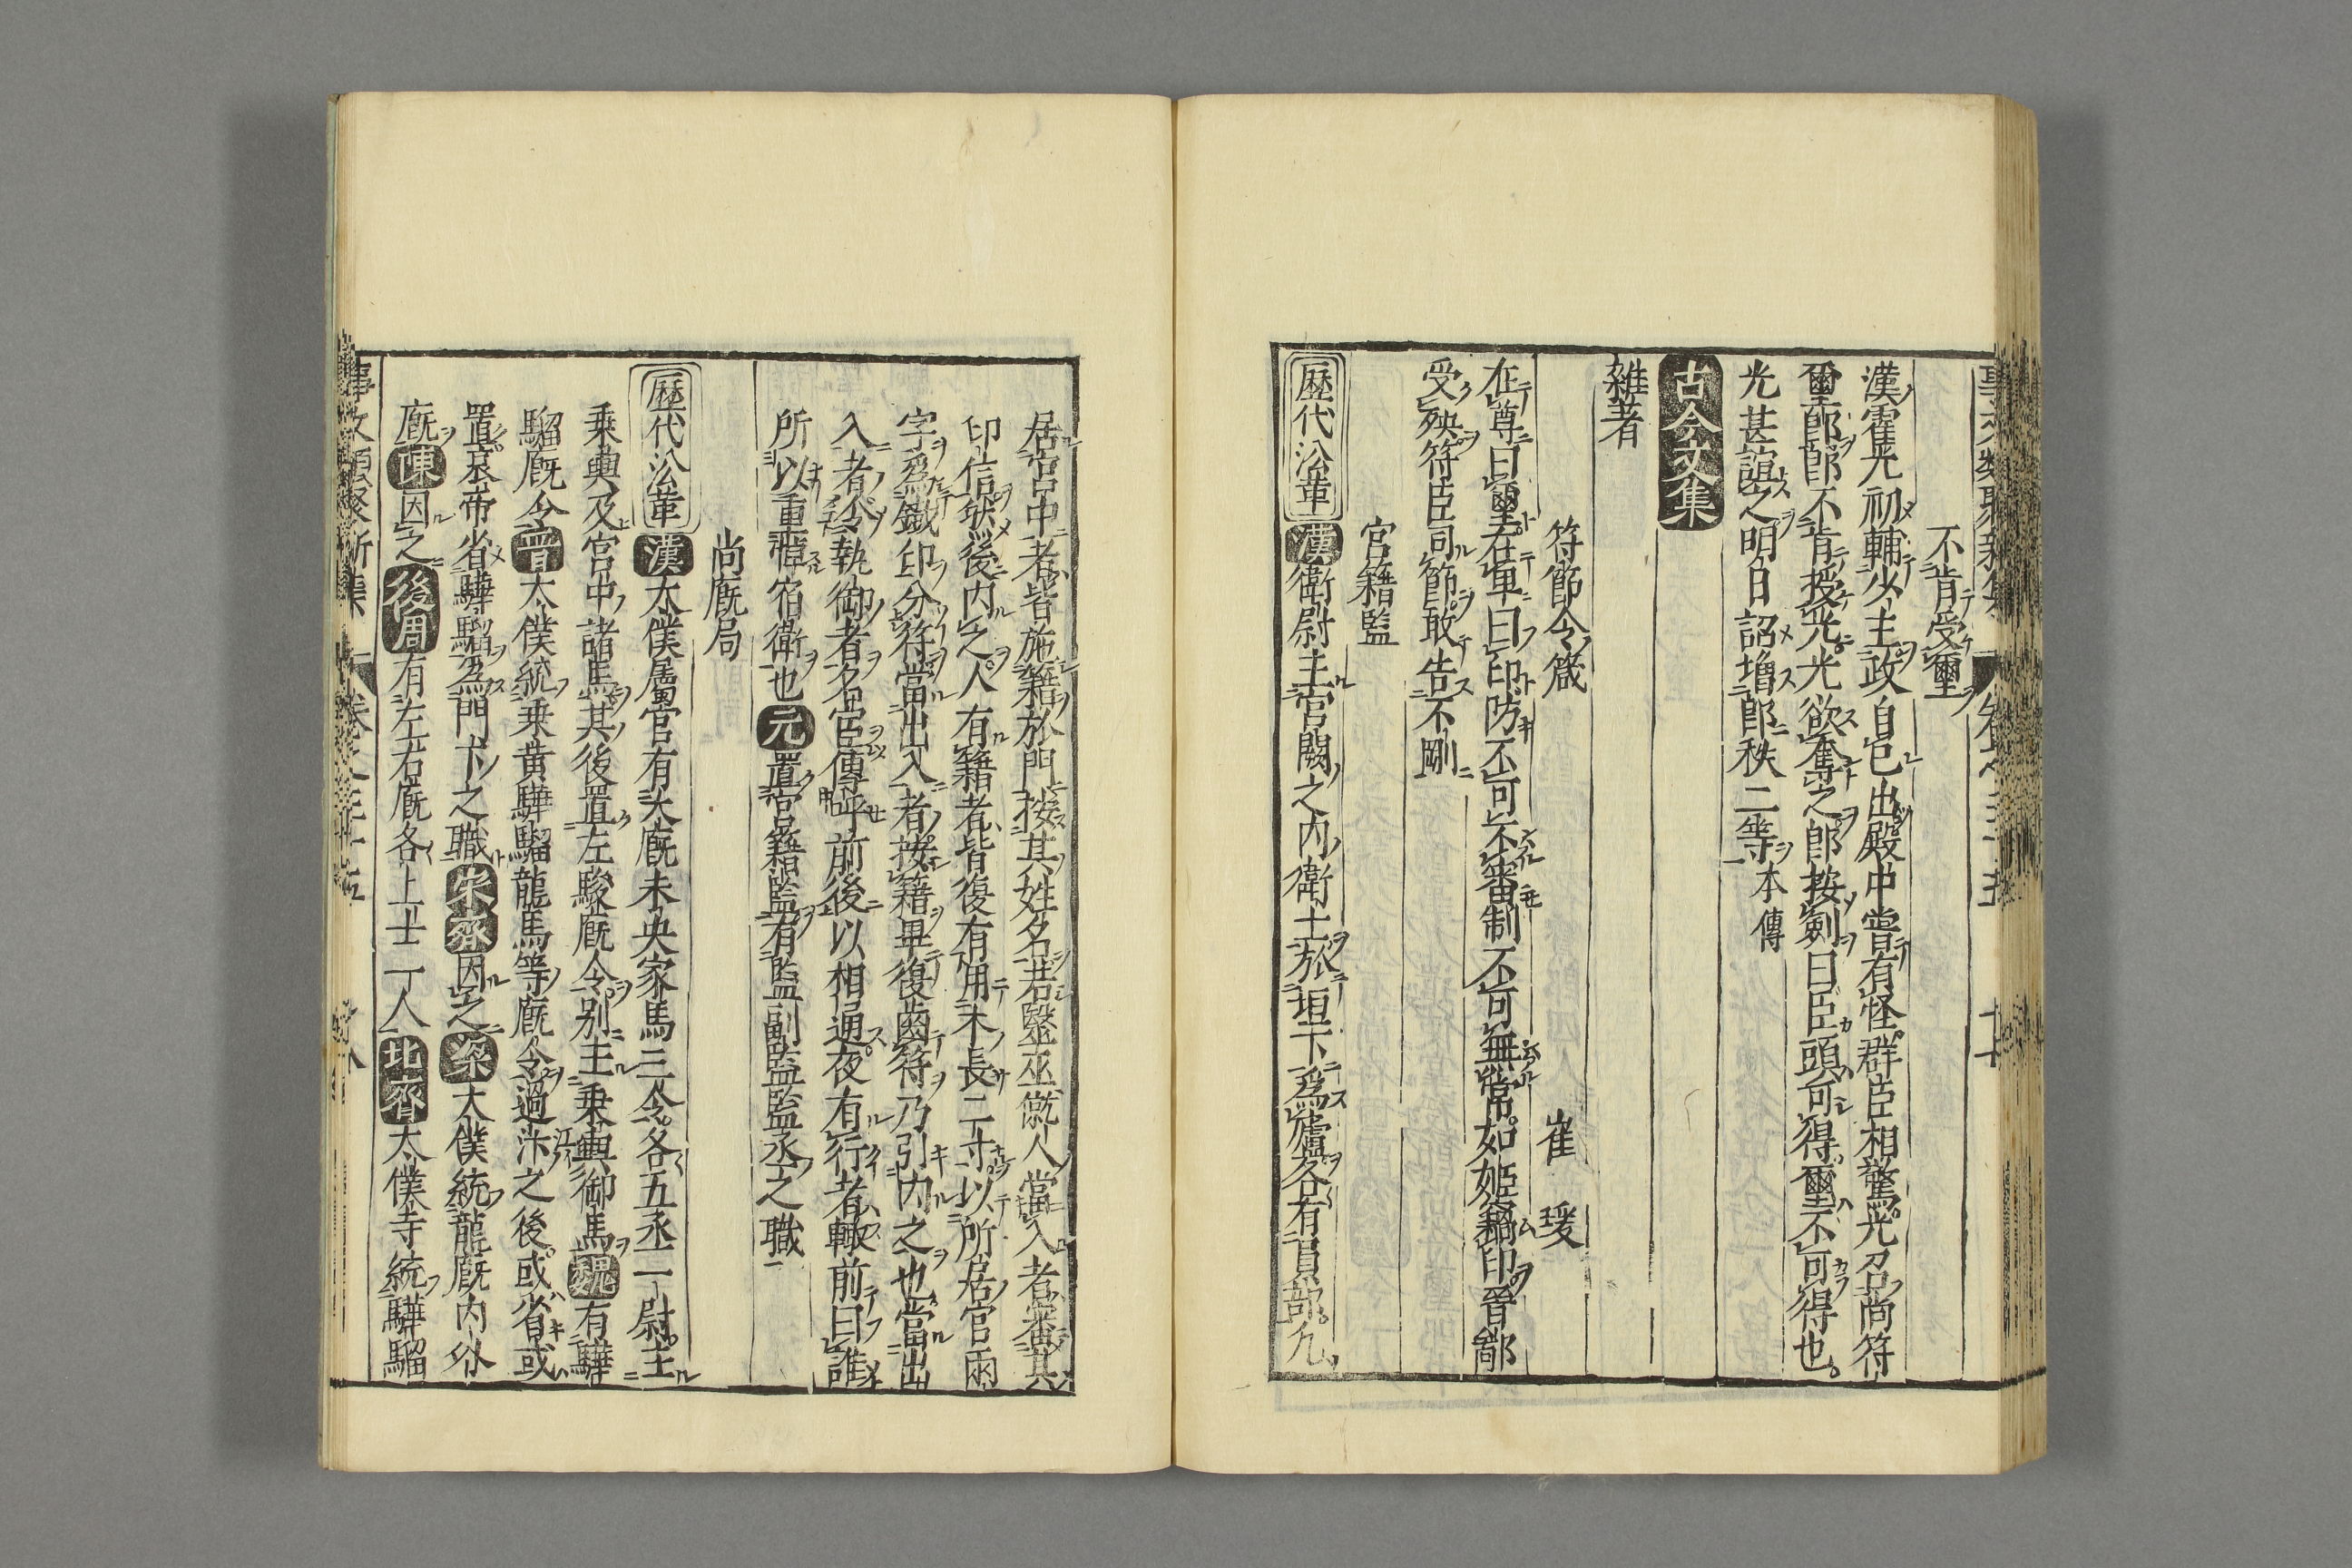 不肯受璽
漢霍光初輔少主政自已出殿中嘗有怪群臣相驚光召尚符
璽郎郎不肯授光光欲奪之郎按劍曰臣頭可得璽不可得也
光甚誼之明日詔増郎秩二等本傳
古今文集
雜著
符節令箴 崔瑗
在尊曰璽在卑曰印防不可不審制不可無常如姬竊印晉鄙
受殃符臣司節敢告不剛
宮籍監
歷代沿革漢衛尉主宮闕之內衛士於垣下爲廬各有員部凡
居宮中者皆施籍於門按其姓名若醫巫僦人當入者案其
印信然後內之人有籍者皆復有用木長二寸以所居官兩
字爲鐵印分符當出入者按籍畢復齒符乃引內之也當出
入者令執御者名官傳呼前後以相通夜有行者輙前曰誰
所以重愼宿衛也元置宮籍監有監副監監丞之職
尚廐局
歷代沿革漢太僕屬官有大廐未央家馬三令各五丞一尉主
乗輿及宮中諸馬其後置左駿廐令別主乗輿御馬魏有驊
騮廐令晉太僕統乗黄驊騮龍馬等廐令過江之後或省或
置哀帝省驊騮爲門下之職宋齊因之梁太僕統龍廐內外
廐陳因之後周有左右廐各上士一人北齊太僕寺統驊騮